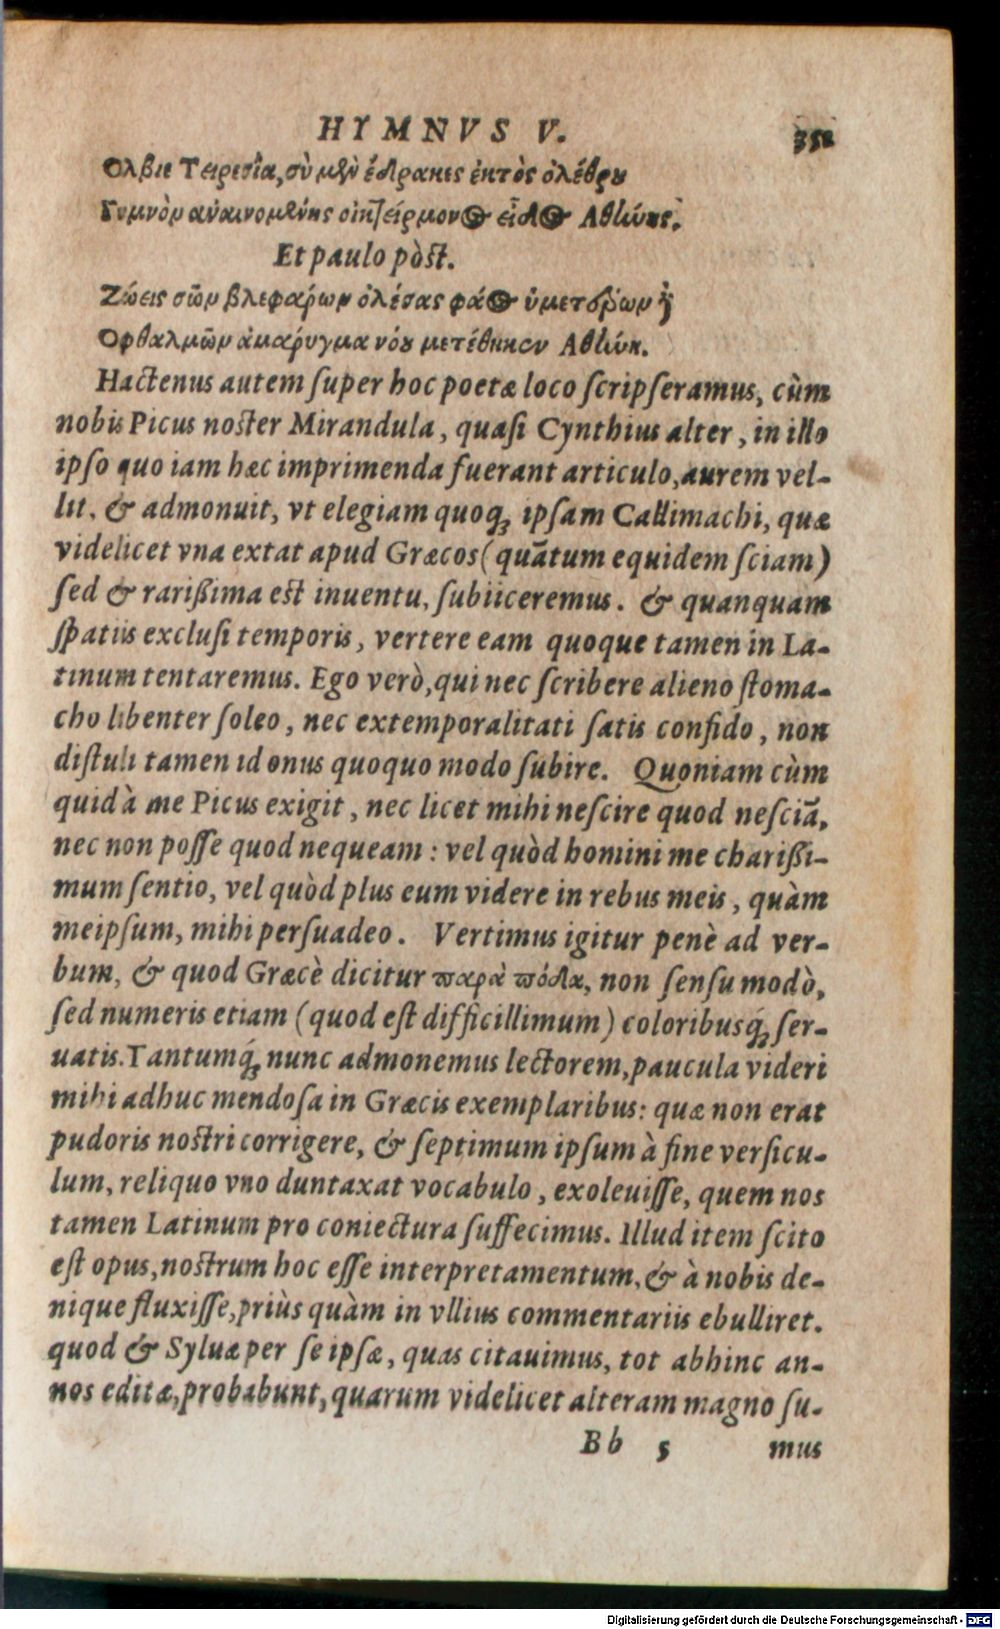 HYMNVS V. 351
Ολβιε Τειρεσία, σὺ μὲν ἔδρακες ἐκτὸς ὀλέθρου
Γυμνὸν ἀναινομένης οἰκτείρμονος εἶδος Αθήνης.
Et paulo pòst.
Ζώεις σῶν βλεφάρων ὀλέσας φάος ὑμετέρων ἢ
Οφθαλμῶν ἀμαρύγμα νόου μετέθηκεν Αθήνη.
Hactenus autem ſuper hoc poetæ loco ſcripſeramus, cùm
nobis Picus noſter Mirandula, quaſi Cynthius alter, in illo
ipſo quo iam hæc imprimenda fuerant articulo, aurem vel-
lit. & admonuit, vt elegiam quoq; ipſam Callimachi, quæ
videlicet vna extat apud Græcos (quātum equidem ſciam)
ſed & rarißima eſt inuentu, ſubiiceremus. & quanquam
ſpatiis excluſi temporis, vertere eam quoque tamen in La-
tinum tentaremus. Ego verò, qui nec ſcribere alieno ſtoma-
cho libenter ſoleo, nec extemporalitati ſatis confido, non
diſtuli tamen id onus quoquo modo ſubire. Quoniam cùm
quid à me Picus exigit, nec licet mihi neſcire quod neſciā,
nec non poſſe quod nequeam: vel quòd homini me charißi-
mum ſentio, vel quòd plus eum videre in rebus meis, quàm
meipſum, mihi perſuadeo. Vertimus igitur penè ad ver-
bum, & quod Græcè dicitur παρὰ πόδα, non ſenſu modò,
ſed numeris etiam (quod eſt difficillimum) coloribusq́; ſer-
uatis. Tantumq́; nunc admonemus lectorem, paucula videri
mihi adhuc mendoſa in Græcis exemplaribus: quæ non erat
pudoris noſtri corrigere, & ſeptimum ipſum à fine verſicu-
lum, reliquo vno duntaxat vocabulo, exoleuiſſe, quem nos
tamen Latinum pro coniectura ſuffecimus. Illud item ſcito
eſt opus, noſtrum hoc eſſe interpretamentum, & à nobis de-
nique fluxiſſe, priùs quàm in vllius commentariis ebulliret.
quod & Syluæ per ſe ipſæ, quas citauimus, tot abhinc an-
nos editæ, probabunt, quarum videlicet alteram magno ſu-
Bb 5 mus
Digitalisierung gefördert durch die Deutsche Forschungsgemeinschaft - DFG